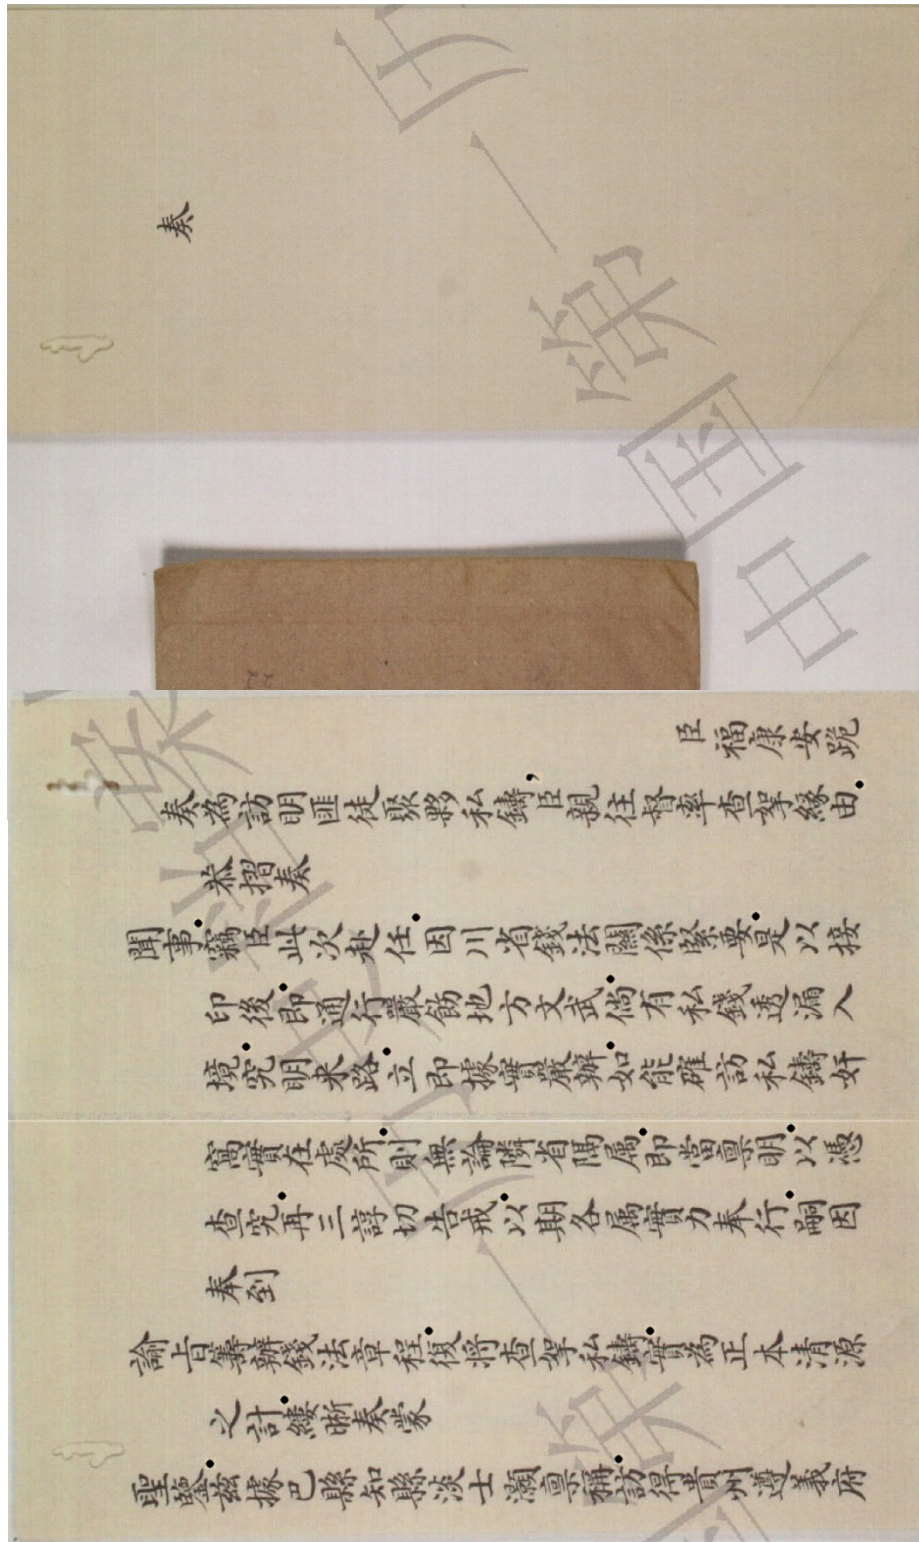 奏
臣福康安跪
奏為訪明匪徒聚夥私鑄，臣親往督率查拏緣由．
恭摺奏
聞事．竊臣此次赴任．因川省錢法關係緊要．是以接
印後．即通行嚴飭地方文武．倘有私錢透漏入
境．究明来路．立即據實嚴辦．如能確訪私鑄奸
窩實在處所．則無論隣省隔属．即當禀明．以憑
查究．再三諄切告戒．以期各属實力奉行．嗣因
奉到
諭旨籌辦錢法章程．復將查拏私鑄．實為正本清源
之計．縷晰奏蒙
聖鑒．茲據巴縣知縣淡士灝禀稱．訪得貴州遵義府
中国第一历
第一历史档案